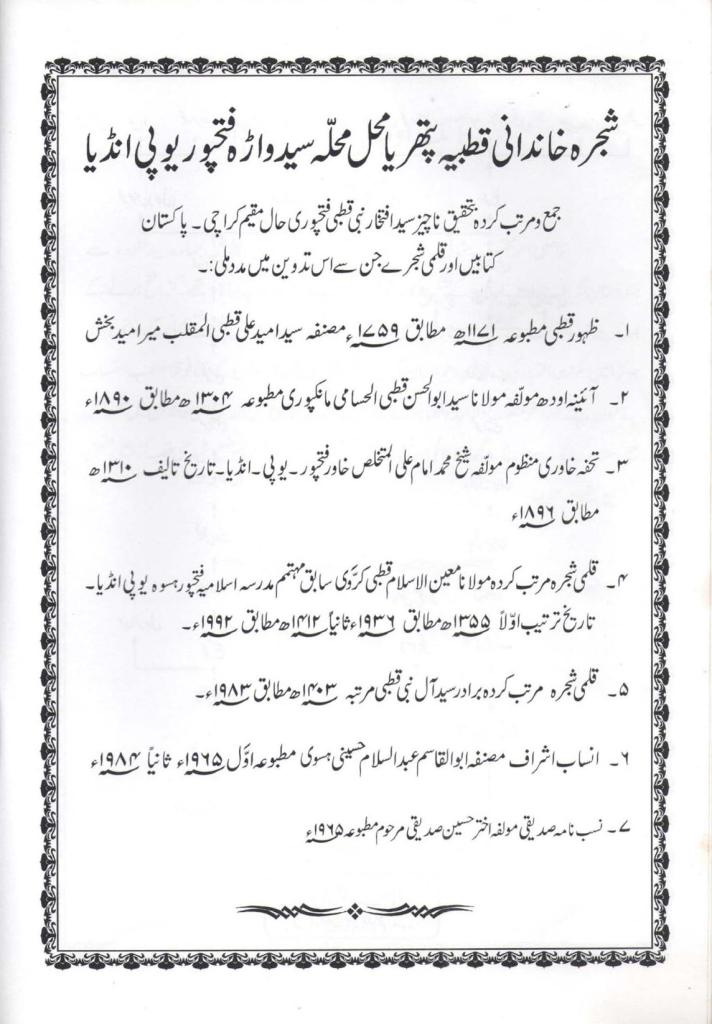 شجرہ خاندانی قطبیہ پتھریا محل محلّہ سید واڑہ فتحپور یوپی انڈیا
جمع و مرتب کردہ بتحقیق ناچیز سید افتخار نبی قطبی فتحپوری حال مقیم کراچی۔ پاکستان
کتابیں اور قلمی شجرے جن سے اس تدوین میں مدد ملی:۔
۱۔ ظہور قطبی مطبوعہ ۱۱۷۱ھ مطابق ۱۷۵۹ء مصنفہ سید امید علی قطبی المقلب میر امید بخش
۲۔ آئینہ اودھ مولّفہ مولانا سید ابوالحسن قطبی الحسامی مانکپوری مطبوعہ ۱۳۰۴ھ مطابق ۱۸۹۰ء
۳۔ تحفہ خاوری منظوم مولّفہ شیخ محمد امام علی المتخلص خاور فتحپور۔ یوپی۔ انڈیا۔ تاریخ تالیف ۱۳۱۰ھ
مطابق ۱۸۹۶ء
۴۔ قلمی شجرہ مرتب کردہ مولانا معین الاسلام قطبی کڑوی سابق مہتمم مدرسہ اسلامیہ فتحپور ہسوہ یوپی انڈیا۔
تاریخ ترتیب اوّلاً ۱۳۵۵ھ مطابق ۱۹۳۶ء ثانیاً ۱۴۱۲ھ مطابق ۱۹۹۲ء۔
۵۔ قلمی شجرہ مرتب کردہ برادر سید آل نبی قطبی مرتبہ ۱۴۰۳ھ مطابق ۱۹۸۳ء۔
۶۔ انساب اشراف مصنفہ ابوالقاسم عبدالسلام حسینی ہسوی مطبوعہ اوّل ۱۹۶۵ء ثانیاً ۱۹۸۴ء
۷۔ نسب نامہ صدیقی مولفہ اختر حسین صدیقی مرحوم مطبوعہ ۱۹۶۵ء